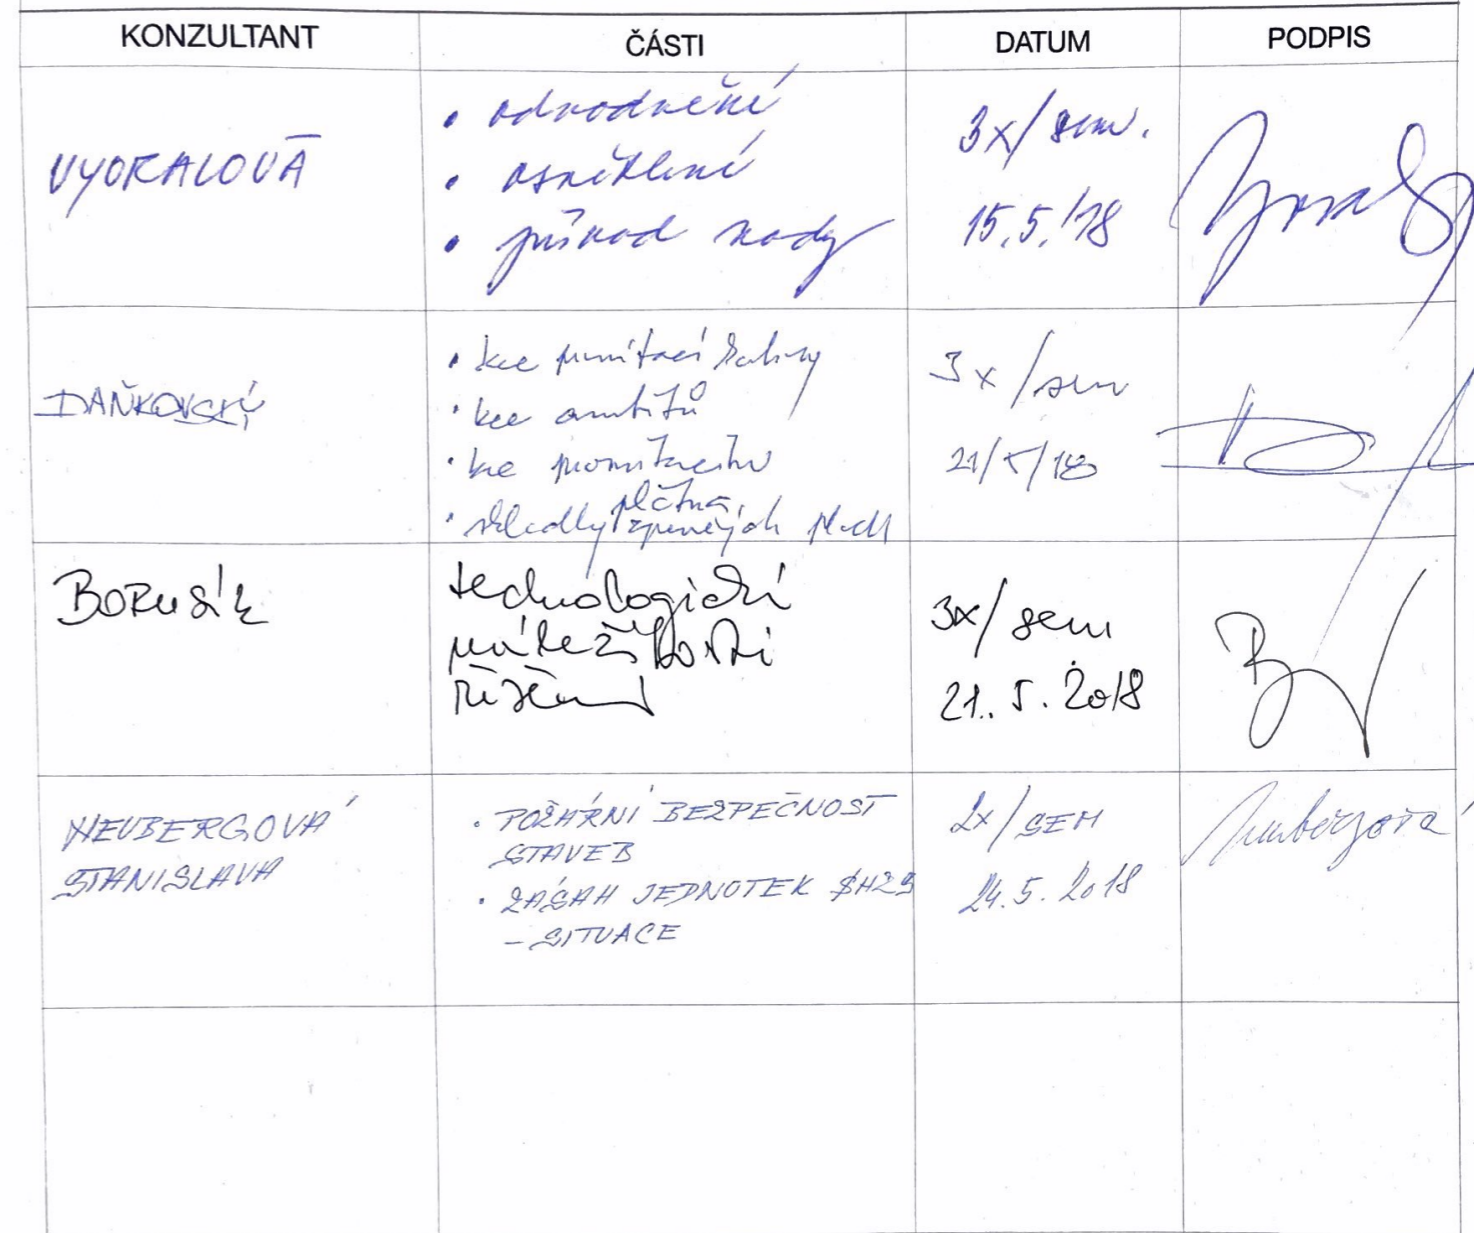 KONZULTANT ČÁSTI DATUM PODPIS
VYORALOVÁ
• odvodnění
• osvětlení
• přívod vody
3x/sem.
15.5.'18
DAŇKOVSKÝ
• kce
• kce ambitů
• kce
• skladby zpevněných ploch
3x/sem
21/5/18
BORUSÍK
technologická
řízení
3x/sem
21.5.2018
NEUBERGOVÁ
STANISLAVA
• POŽÁRNÍ BEZPEČNOST
STAVEB
• ZÁSAH JEDNOTEK
- SITUACE
2x/SEM
24.5.2018
Neubergová